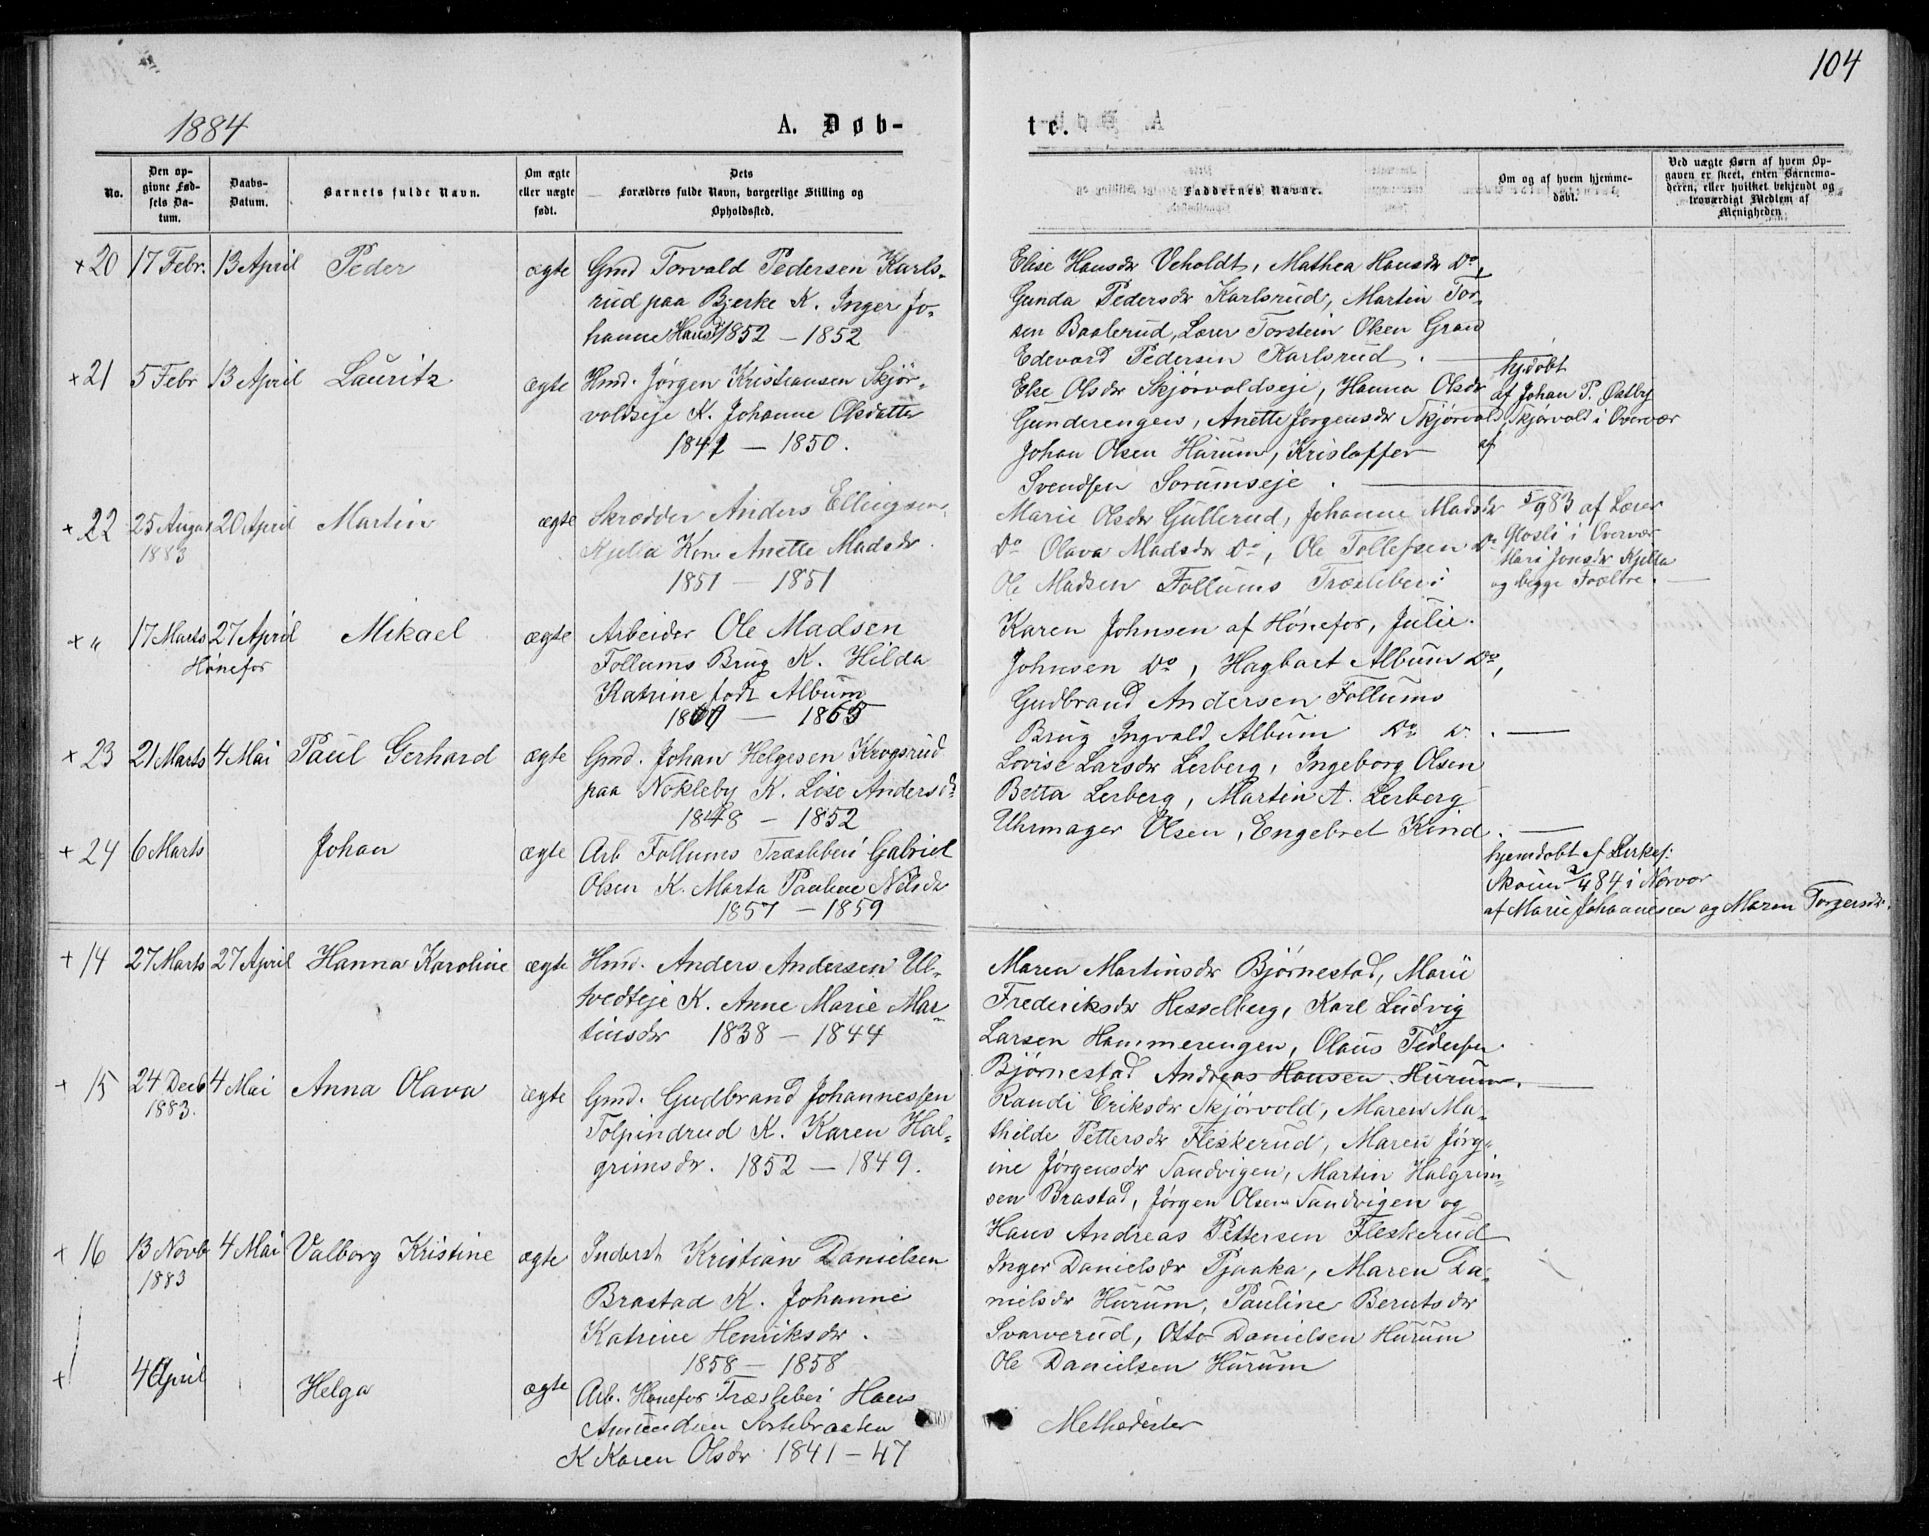 104
1884
A. Døb-
te.
No.
Den op-
givne Fød-
sels Da-
tum.
Daabs-
Datum.
Barnets fulde Navn.
Om ægte
eller uægte
født.
Dets
Forældres fulde Navn, borgerlige Stilling og
Opholdssted.
Faddernes Navne.
Om og af hvem hjemme-
døbt.
Ved uægte Børn af hvem Op-
gaven er skeet, enten Barnemo-
deren, eller hvilket bekjendt og
troværdigt Medlem af
Menigheden
+ 20 17 Febr. 13 April Peder ægte Gmd Torvald Pedersen Karls-
rud paa Bjerke K. Inger Jo-
hanne Hansdr 1852 – 1852
Elise Hansdr Veholdt, Mathea Hansdr Do,
Gunda Pedersdr Karlsrud, Martin Tor-
sen Baalerud, Lærer Torstein Olsen Gran
Edevard Pedersen Karlsrud.
+ 21 5 Febr 13 April Lauritz ægte Hmd. Jørgen Kristiansen Skjør-
voldseje K. Johanne Olsdatter
1841 – 1850.
Else Olsdr Skjørvoldseje, Hanna Olsdr
Gunderengen, Anette Jørgensdr Skjørvold,
Johan Olsen Hurum, Kristoffer
Svendsen Sørumseje.
hjdøbt
af Johan P. Østby
Skjørvold i Overvær
af
+ 22 25 August 20 April Martin ægte Skrædder Anders Ellingsen
1883 Kjelia Kone Anette Madsdr.
1851 – 1851
Marie Olsdr Gullerud, Johanne Madsdr
Do Olava Madsdr Do, Ole Tollefsen Do
Ole Madsen Follums Træsliberi
5/9 83 af Lærer
Glosli i Overvær
Mari Jonsdr Kjelia
og begge Forældre.
+ " 17 Marts 27 April Mikael ægte Arbeider Ole Madsen
Hønefos Follums Brug K. Hilda
Katrine født Album
1861 – 1865
Karen Johnsen af Hønefos, Julie
Johnsen Do, Hagbart Album Do,
Gudbrand Andersen Follums
Brug Ingvald Album Do Do.
+ 23 21 Marts 4 Mai Paul Gerhard ægte Gmd. Johan Helgesen Krogsrud
paa Nokleby K. Lise Andersdr
1848 – 1852
Lovise Larsdr Lerberg, Ingeborg Olsen
Betta Lerberg, Martin A. Lerberg
Uhrmager Olsen, Engebret Kind.
+ 24 6 Marts Johan ægte Arb Follums Træsliberi Gabriel
Olsen K. Marta Pauline Nilsdr
1857 – 1859
hjemdøbt af Kirkes:
Skoien 2/4 84 i Nærvær
af Marie Johannesen og Maren Torgersdr.
+ 14 27 Marts 27 April Hanna Karoline ægte Hmd. Anders Andersen Ul-
tvedteje K. Anne Marie Mar-
tinsdr 1838 – 1844
Maren Martinsdr Bjørnestad, Marie
Frederiksdr Hesselberg, Karl Ludvig
Larsen Hammerengen, Olaus Pedersen
Bjørnestad Andreas Hansen Hurum.
+ 15 24 Decb 4 Mai Anna Olava ægte Gmd. Gudbrand Johannessen
1883. Tolpindrud K. Karen Hal-
grimsdr. 1852 – 1849.
Randi Eriksdr Skjørvold, Maren Ma-
thilde Pettersdr Fleskerud, Maren Jørg-
ine Jørgensdr Sandvigen, Martin Halgrim-
sen Brastad, Jørgen Olsen Sandvigen og
Hans Andreas Pettersen Fleskerud
+ 16 13 Novb 4 Mai Valborg Kristine ægte Inderst Kristian Danielsen
1883 Brastad K. Johanne
Katrine Henriksdr.
1858 – 1858
Inger Danielsdr Pjaaka, Maren Da-
nielsdr Hurum, Pauline Berntsdr
Svarverud, Otto Danielsen Hurum
Ole Danielsen Hurum
+ 4 April Helga ægte Arb. Hønefos Træsliberi Hans
Amundsen Sortebraaten
K Karen Olsdr 1841 – 47
Methodister